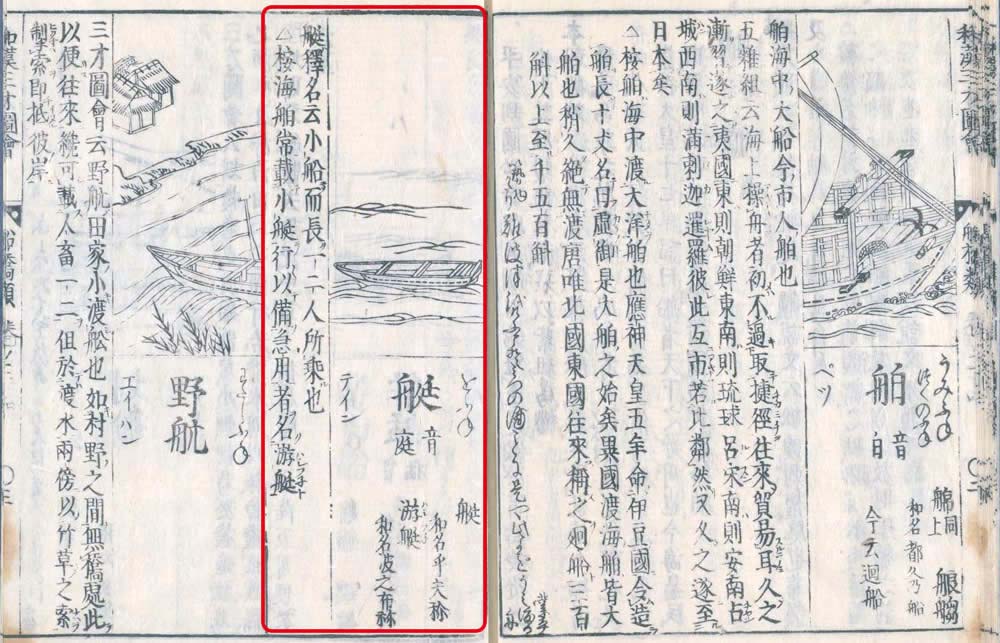 舶
音白
うみふね
つくのふね
ペツ
舶同上
和名都久乃船
今云廻船
舶海中大船今市人舶也
五雜組云海上操舟者初不過取捷徑往來貿易耳久之
漸習遂之東國東則朝鮮東南則琉球呂宋南則安南占
城西南則滿剌迦暹羅彼此互市若比鄰然又久之遂至
日本矣
△按舶海中渡大洋舶也應神天皇五年命伊豆國令造
舶長十丈名曰虛御是大舶之始矣異國渡海舶皆大
舶也稍久絕無渡唐唯北國東國往來稱之廻船二百
斛以上至千五百斛
艇
音庭
テイン
艇
和名乎夫祢
游艇
和名波之布祢
艇釋名云小船而長一二人所乘也
△按海舶常載小艇行以備急用者名游艇
野航
エイハン
三才圖會云野航田家小渡舩也如村野之間無橋處此
以便往來纔可載人畜一二但於渡水兩傍以竹草之索
制索即抵彼岸
和漢三才圖會
船橋類